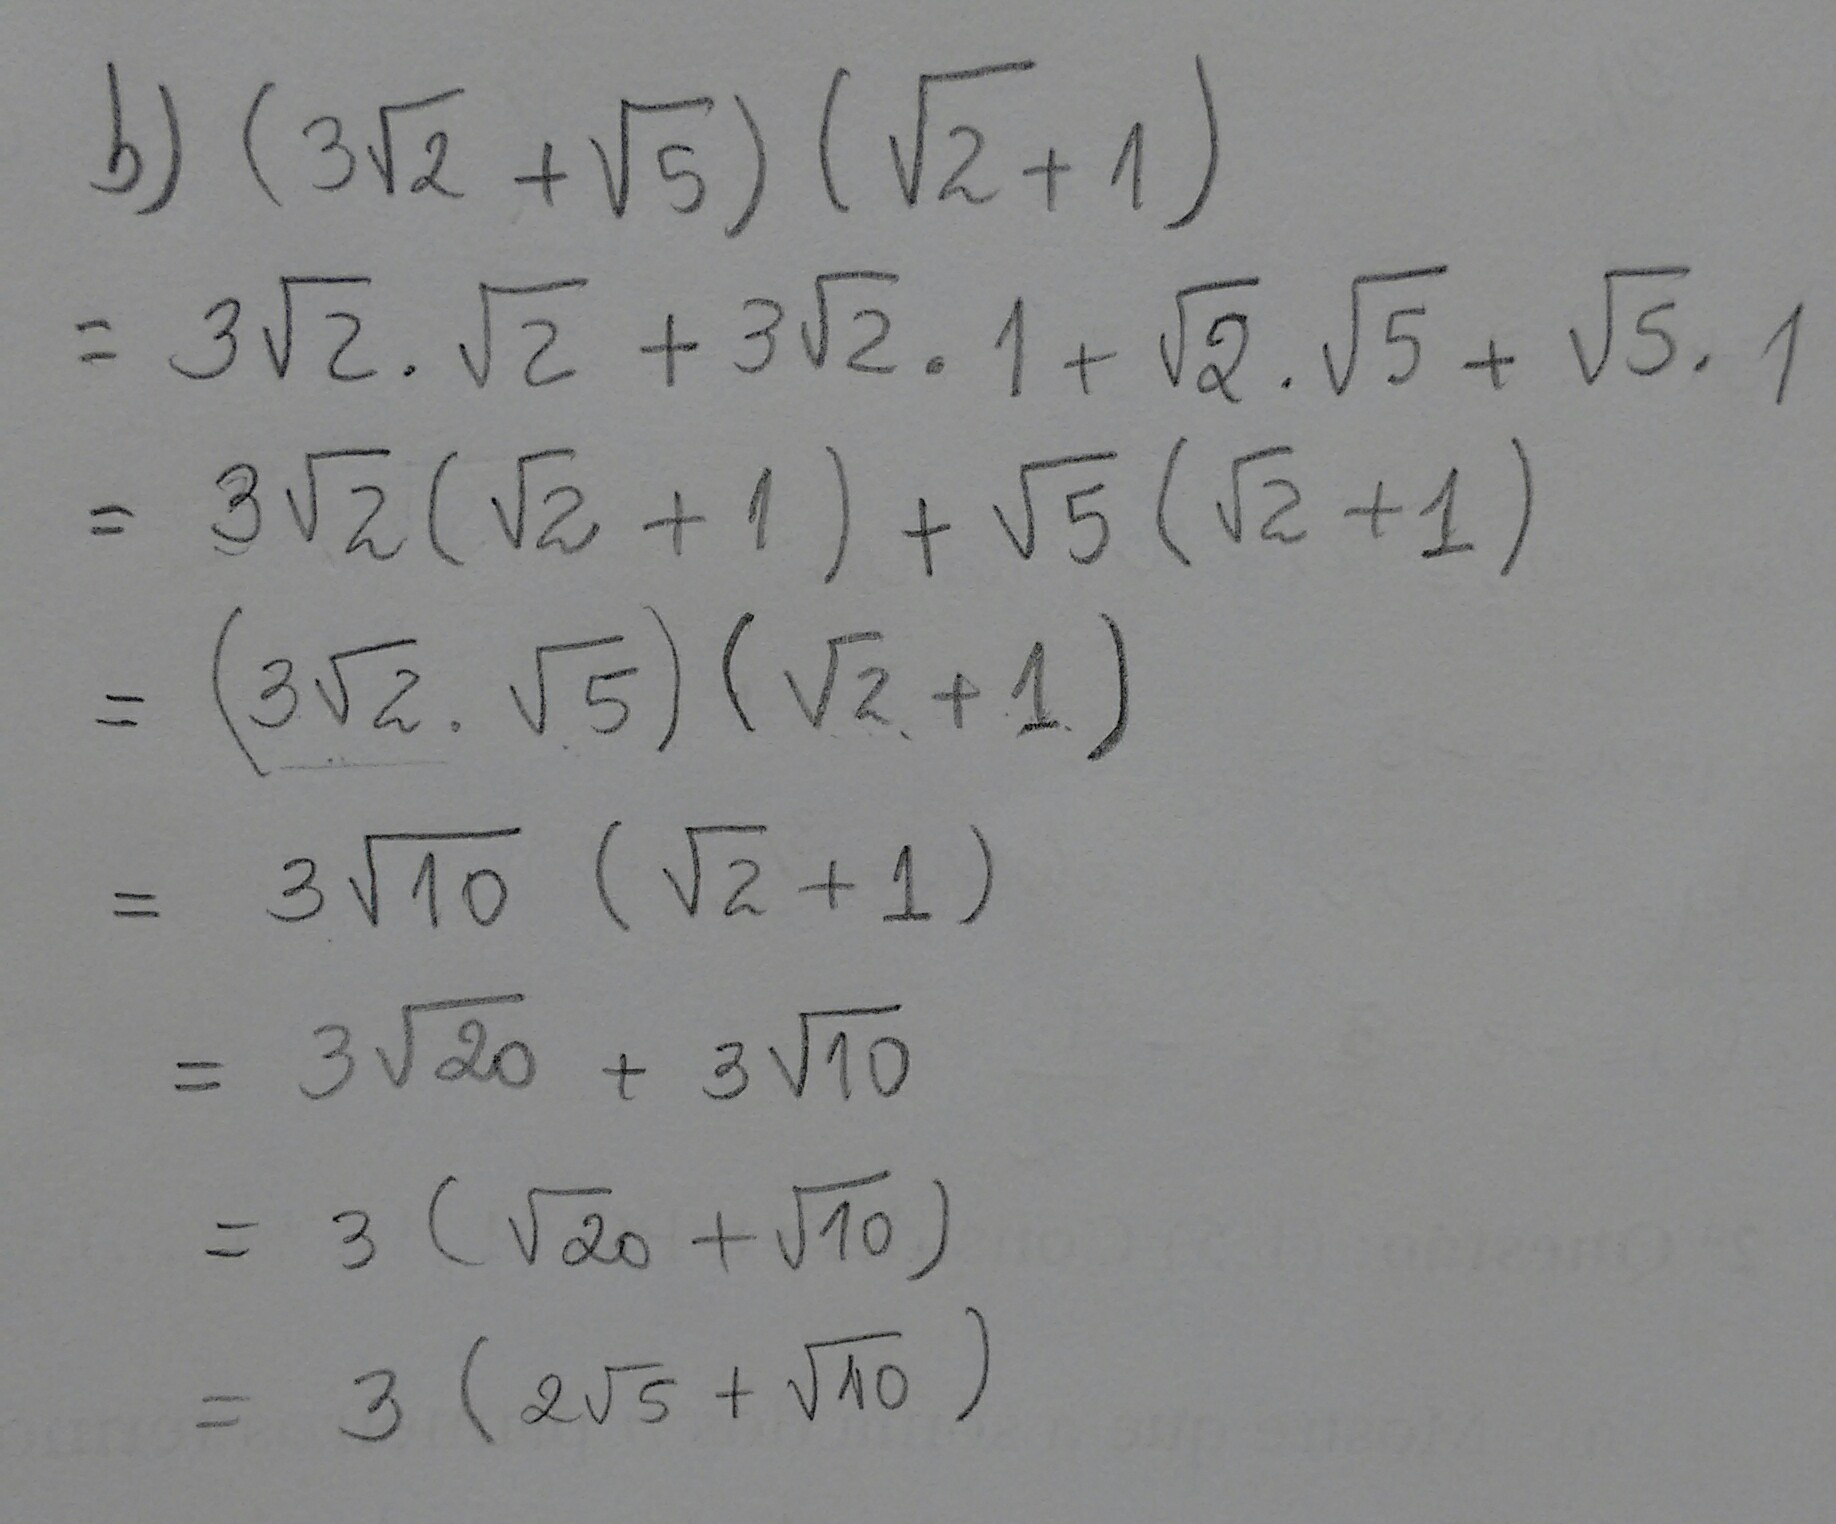 b) (3√2 + √5) (√2 + 1)
= 3√2 . √2 + 3√2 . 1 + √2 . √5 + √5 . 1
= 3√2 (√2 + 1) + √5 (√2 + 1)
= (3√2 . √5) (√2 + 1)
= 3√10 (√2 + 1)
= 3√20 + 3√10
= 3 (√20 + √10)
= 3 (2√5 + √10)